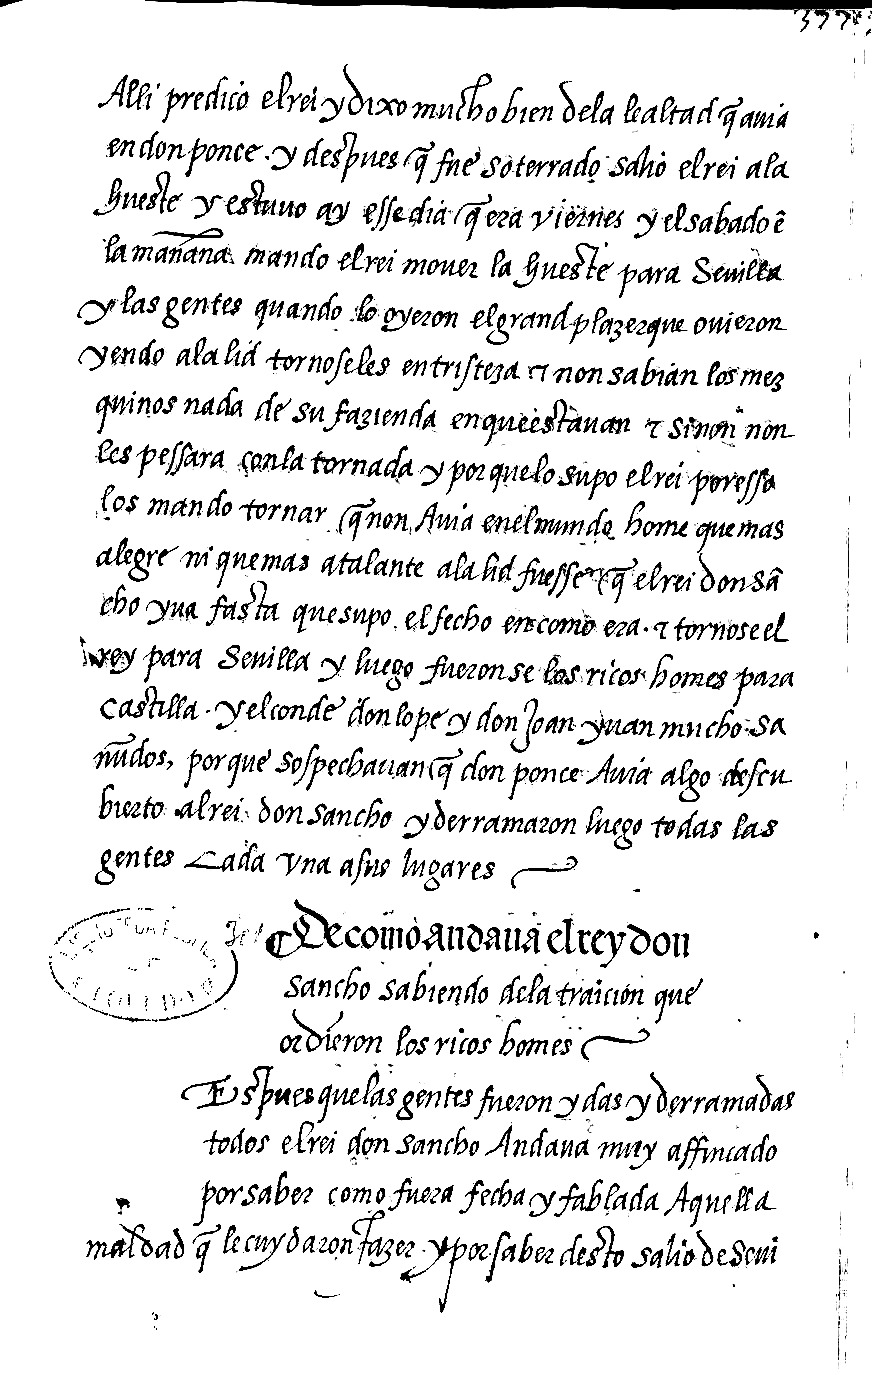 377
Alli predico el rei y dixo mucho bien dela lealtad q̃ auia
en don ponce. y despues q̃ fue soterrado salio el rei ala
hueste y estuuo ay esse dia q̃ era viernes y el sabado ẽ
la mañana mando el rei mouer la hueste para Seuilla
y las gentes quando lo oyeron el grand plazer que ouieron
yendo ala lid tornoseles en tristeza ⁊ non sabian los mez
quinos nada de su fazienda en que estauan ⁊ sinon non
les pessara con la tornada y por que lo supo el rei por esso
los mando tornar q̃ non Auia en el mundo home que mas
alegre ni que mas atalante ala lid fuesse q̃ el rei don sã
cho yua fasta que supo el fecho en como era. ⁊ tornose el
rey para Seuilla y luego fueron se los ricos homes para
Castilla. y el conde don lope y don Joan yuan mucho sa
ñudos, por que sospechauan q̃ don ponce Auia algo descu
bierto al rei don sancho y derramaron luego todas las
gentes Cada vna a sus lugares
¶ De como andaua el rey don
sancho sabiendo dela traicion que
ordieron los ricos homes
Espues que las gentes fueron ydas y derramadas
todos el rei don sancho Andaua muy affincado
por saber como fuera fecha y fablada Aquella
maldad q̃ le cuydaron fazer y por saber desto salio de Seui